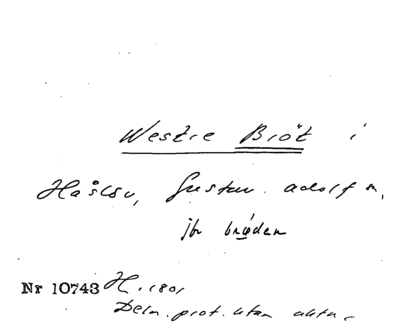 Westre Biöt i
Håslöv, Gustav Adolf n,
jbr bröden
Nr 10743 H. 1801
Deln. prot. utan akter